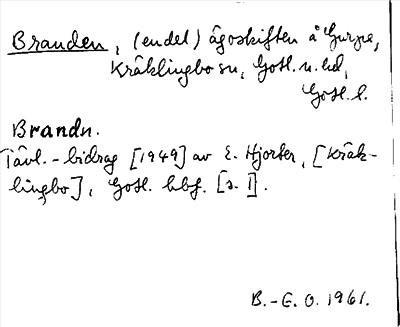 Branden, (en del) ägoskiften å Gurpe,
Kräklingbo sn, Gotl. n. hd,
Gotl. l.
Brandn.
Tävl.-bidrag [1949] av E. Hjorter, [Kräk-
lingbo], Gotl. hbf. [s. 1].
B.-E. O. 1961.